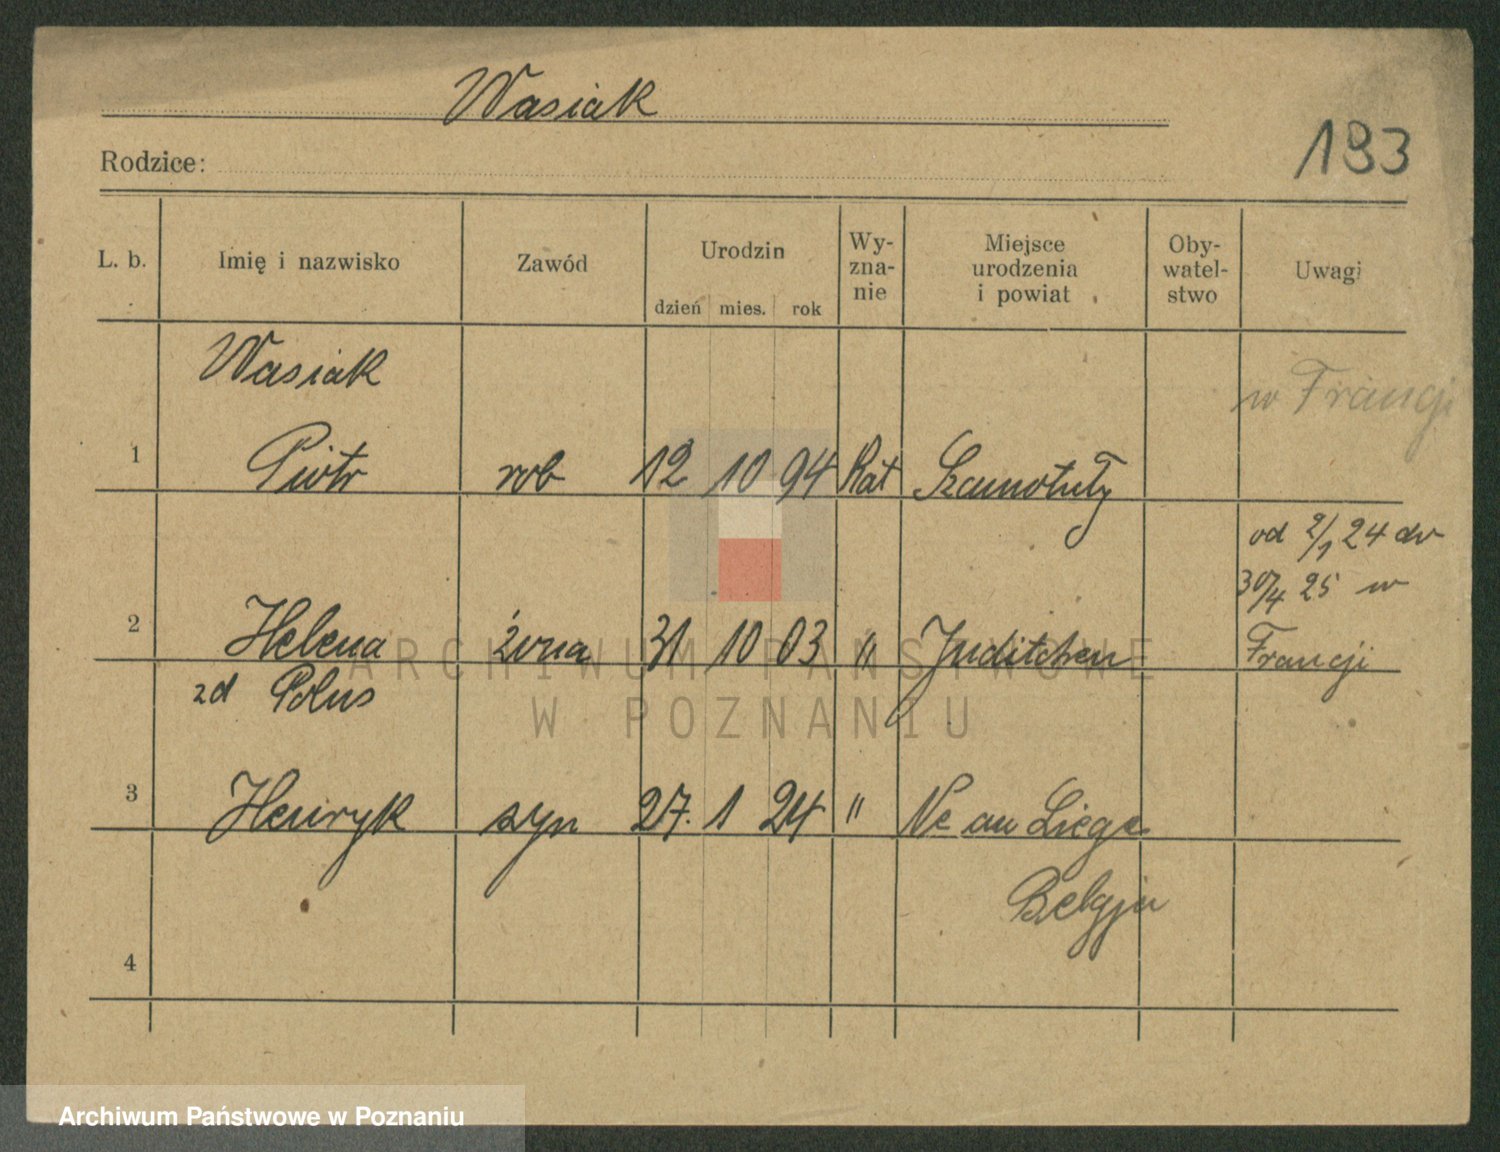 Wasiak
193
Rodzice:
L. b. Imię i nazwisko Zawód Urodzin dzień mies. rok Wy-zna-nie Miejsce urodzenia i powiat Oby-watel-stwo Uwagi
Wasiak
w Francji
1 Piotr rob 12 10 94 Kat Szamotuły
od 2/1 24 do
30/4 25 w
2 Helena żona 31 10 03 " Juditchen Francji
zd Polus
3 Henryk syn 27. 1 24 " Ne au Liege
Belgja
4
ARCHIWUM PAŃSTWOWE
W POZNANIU
Archiwum Państwowe w Poznaniu